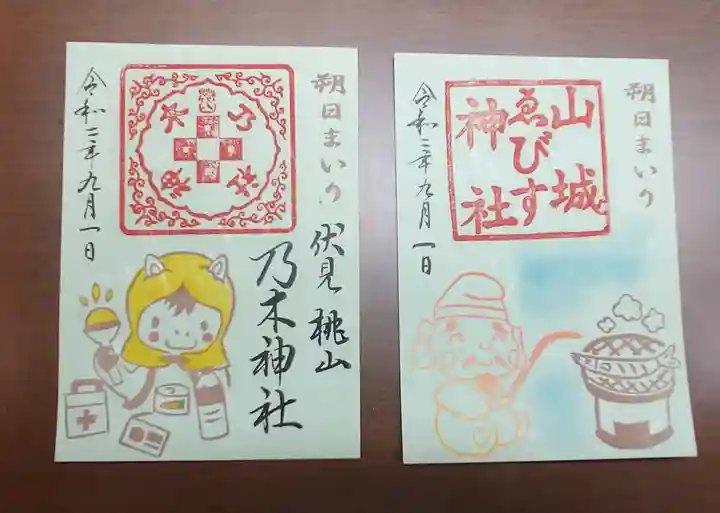 朔日まいり
伏見桃山
乃木神社
令和二年九月一日
朔日まいり
山城
ゑびす
神社
令和二年九月一日